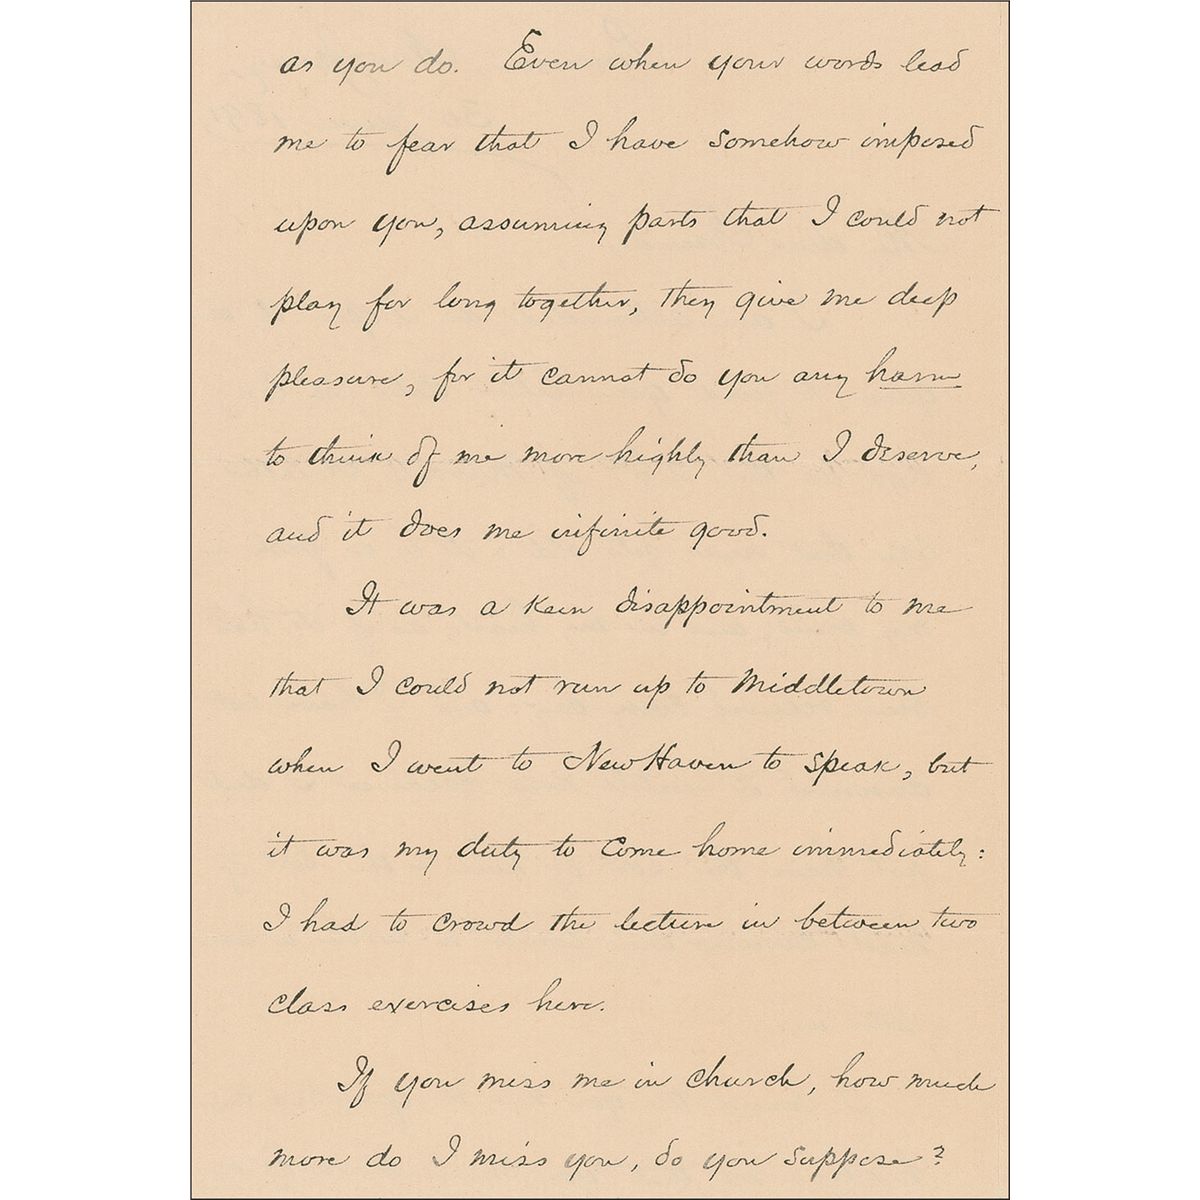 as you do. Even when your words lead
me to fear that I have somehow imposed
upon you, assuming parts that I could not
play for long together, they give me deep
pleasure, for it cannot do you any harm
to think of me more highly than I deserve,
and it does me infinite good.
It was a keen disappointment to me
that I could not run up to Middletown
when I went to New Haven to speak, but
it was my duty to come home immediately:
I had to crowd the lecture in between two
class exercises here.
If you miss me in church, how much
more do I miss you, do you suppose?